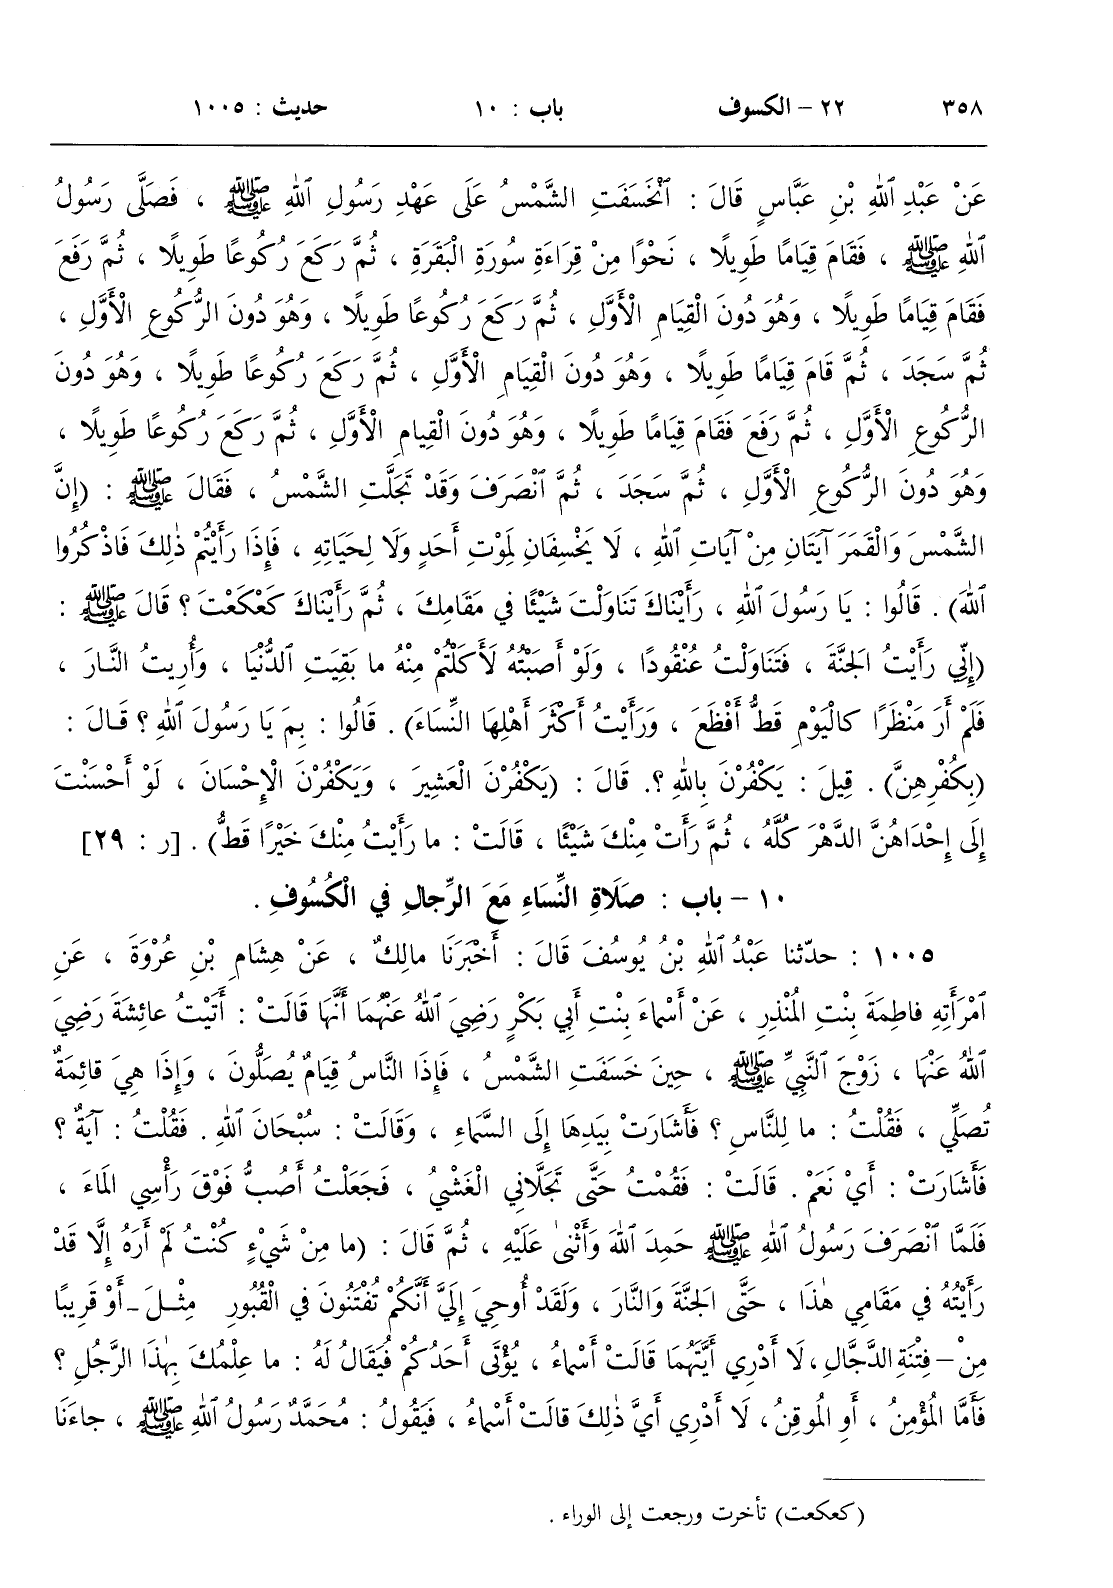 ٣٥٨ ٢٢ – الكسوف باب : ١٠ حديث : ١٠٠٥
عَنْ عَبْدِ ٱللهِ بْنِ عَبَّاسٍ قَالَ : ٱنْخَسَفَتِ الشَّمْسُ عَلَى عَهْدِ رَسُولِ ٱللهِ ﷺ ، فَصَلَّى رَسُولُ
ٱللهِ ﷺ ، فَقَامَ قِيَامًا طَوِيلًا ، نَحْوًا مِنْ قِرَاءَةِ سُورَةِ الْبَقَرَةِ ، ثُمَّ رَكَعَ رُكُوعًا طَوِيلًا ، ثُمَّ رَفَعَ
فَقَامَ قِيَامًا طَوِيلًا ، وَهُوَ دُونَ الْقِيَامِ الْأَوَّلِ ، ثُمَّ رَكَعَ رُكُوعًا طَوِيلًا ، وَهُوَ دُونَ الرُّكُوعِ الْأَوَّلِ ،
ثُمَّ سَجَدَ ، ثُمَّ قَامَ قِيَامًا طَوِيلًا ، وَهُوَ دُونَ الْقِيَامِ الْأَوَّلِ ، ثُمَّ رَكَعَ رُكُوعًا طَوِيلًا ، وَهُوَ دُونَ
الرُّكُوعِ الْأَوَّلِ ، ثُمَّ رَفَعَ فَقَامَ قِيَامًا طَوِيلًا ، وَهُوَ دُونَ الْقِيَامِ الْأَوَّلِ ، ثُمَّ رَكَعَ رُكُوعًا طَوِيلًا ،
وَهُوَ دُونَ الرُّكُوعِ الْأَوَّلِ ، ثُمَّ سَجَدَ ، ثُمَّ ٱنْصَرَفَ وَقَدْ تَجَلَّتِ الشَّمْسُ ، فَقَالَ ﷺ : (إِنَّ
الشَّمْسَ وَالْقَمَرَ آيَتَانِ مِنْ آيَاتِ ٱللهِ ، لَا يَخْسِفَانِ لِمَوْتِ أَحَدٍ وَلَا لِحَيَاتِهِ ، فَإِذَا رَأَيْتُمْ ذٰلِكَ فَاذْكُرُوا
ٱللهَ) . قَالُوا : يَا رَسُولَ ٱللهِ ، رَأَيْنَاكَ تَنَاوَلْتَ شَيْئًا في مَقَامِكَ ، ثُمَّ رَأَيْنَاكَ كَعْكَعْتَ ؟ قالَ ﷺ :
(إِنِّي رَأَيْتُ الجَنَّةَ ، فَتَنَاوَلْتُ عُنْقُودًا ، وَلَوْ أَصَبْتُهُ لَأَكَلْتُمْ مِنْهُ ما بَقِيَتِ ٱلدُّنْيَا ، وَأُرِيتُ النَّـارَ ،
فَلَمْ أَرَ مَنْظَرًا كالْيَوْمِ قَطُّ أَفْظَعَ ، وَرَأَيْتُ أَكْثَرَ أَهْلِهَا النِّسَاءَ) . قَالُوا : بِمَ يَا رَسُولَ ٱللهِ ؟ قَـالَ :
(بِكُفْرِهِنَّ) . قِيلَ : يَكْفُرْنَ بِاللهِ ؟. قَالَ : (يَكْفُرْنَ الْعَشِيرَ ، وَيَكْفُرْنَ الْإِحْسَانَ ، لَوْ أَحْسَنْتَ
إِلَى إِحْدَاهُنَّ الدَّهْرَ كُلَّهُ ، ثُمَّ رَأَتْ مِنْكَ شَيْئًا ، قَالَتْ : ما رَأَيْتُ مِنْكَ خَيْرًا قَطُّ) . [ر : ٢٩]
١٠ – باب : صَلَاةِ النِّسَاءِ مَعَ الرِّجالِ في الْكُسُوفِ .
١٠٠٥ : حدّثنا عَبْدُ ٱللهِ بْنُ يُوسُفَ قَالَ : أَخْبَرَنَا مالِكٌ ، عَنْ هِشَامِ بْنِ عُرْوَةَ ، عَنِ
ٱمْرَأَتِهِ فاطِمَةَ بِنْتِ المُنْذِرِ ، عَنْ أَسْماءَ بِنْتِ أَبِي بَكْرٍ رَضِيَ ٱللهُ عَنْهُمَا أَنَّهَا قَالَتْ : أَتَيْتُ عائِشَةَ رَضِيَ
ٱللهُ عَنْهَا ، زَوْجَ ٱلنَّبِيِّ ﷺ ، حِينَ خَسَفَتِ الشَّمْسُ ، فَإِذَا النَّاسُ قِيَامٌ يُصَلُّونَ ، وَإِذَا هِيَ قائِمَةٌ
تُصَلِّي ، فَقُلْتُ : ما لِلنَّاسِ ؟ فَأَشَارَتْ بِيَدِهَا إِلَى السَّمَاءِ ، وَقَالَتْ : سُبْحَانَ ٱللهِ . فَقُلْتُ : آيَةٌ ؟
فَأَشَارَتْ : أَيْ نَعَمْ . قَالَتْ : فَقُمْتُ حَتَّى تَجَلَّاني الْغَشْيُ ، فَجَعَلْتُ أَصُبُّ فَوْقَ رَأْسِي المَاءَ ،
فَلَمَّا ٱنْصَرَفَ رَسُولُ ٱللهِ ﷺ حَمِدَ ٱللهَ وَأَثْنىٰ عَلَيْهِ ، ثُمَّ قَالَ : (ما مِنْ شَيْءٍ كُنْتُ لَمْ أَرَهُ إِلَّا قَدْ
رَأَيْتُهُ في مَقَامِي هٰذَا ، حَتَّى الجَنَّةَ وَالنَّارَ ، وَلَقَدْ أُوحِيَ إِلَيَّ أَنَّكُمْ تُفْتَنُونَ في الْقُبُورِ مِثْـلَ ـ أَوْ قَرِيبًا
مِنْ – فِتْنَةِ الدَّجَّالِ ، لَا أَدْرِي أَيَّتَهُمَا قَالَتْ أَسْماءُ ، يُؤْتَى أَحَدُكُمْ فَيُقَالُ لَهُ : ما عِلْمُكَ بِهٰذَا الرَّجُلِ ؟
فَأَمَّا المُؤْمِنُ ، أَوِ المُوقِنُ ، لَا أَدْرِي أَيَّ ذٰلِكَ قالَتْ أَسْماءُ ، فَيَقُولُ : مُحَمَّدٌ رَسُولُ ٱللهِ ﷺ ، جاءَنَا
(كعكعت) تأخرت ورجعت إلى الوراء .